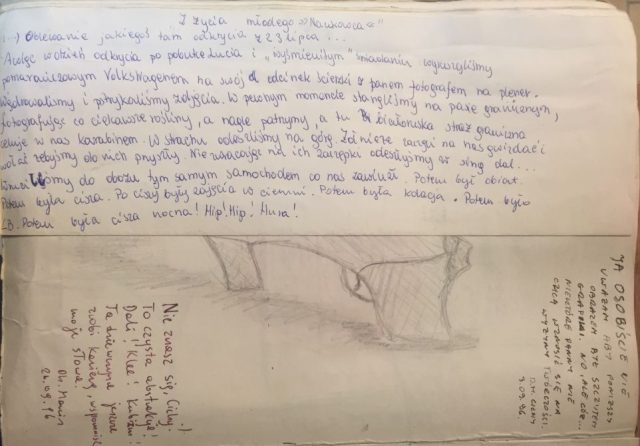 Z życia młodego "Naukowca"
Oblewanie jakiegoś tam odkrycia z 23 lipca...
A więc w dzień odkrycia po pobudce Lucia i „wyśmienitym" śniadaniu wyruszyliśmy
pomarańczowym Volkswagenem na swój odcinek ścieżki z panem fotografem na plener.
Wędrowaliśmy i pstrykaliśmy zdjęcia. W pewnym momencie stanęliśmy na pasie granicznym,
fotografując co ciekawsze rośliny, a nagle patrzymy, a tu białoruska straż graniczna
celuje w nas karabinem. W strachu odeszliśmy na górę. Żołnierze zaczęli na nas gwizdać i
wołać żebyśmy do nich przyszli. Nie zwracając na ich zaczepki odeszliśmy w siną dal...
do obozu tym samym samochodem co nas zawiózł. Potem był obiad.
Potem była cisza. Po ciszy były zajęcia w ciemni. Potem była kolacja. Potem było
Potem była cisza nocna! Hip! Hip! Hura!
Nie znasz się, Cichy!
To czysta abstrakcja!
Dali! Klee! Kubizm!
Ta dziewczyna jeszcze
zrobi karierę, wspomnisz
moje słowa!
26.09.96
JA OSOBIŚCIE NIE
UWAŻAM ABY POWYŻSZY
OBRAZEM BYŁ SZCZYTEM
GRAFIKI. NO, ALE CÓŻ...
NIEKTÓRE PANNY NIE
CHCĄ WZNOSIĆ SIĘ NA
WYŻYNY TWÓRCZOŚCI.
CICHY
3.09.96